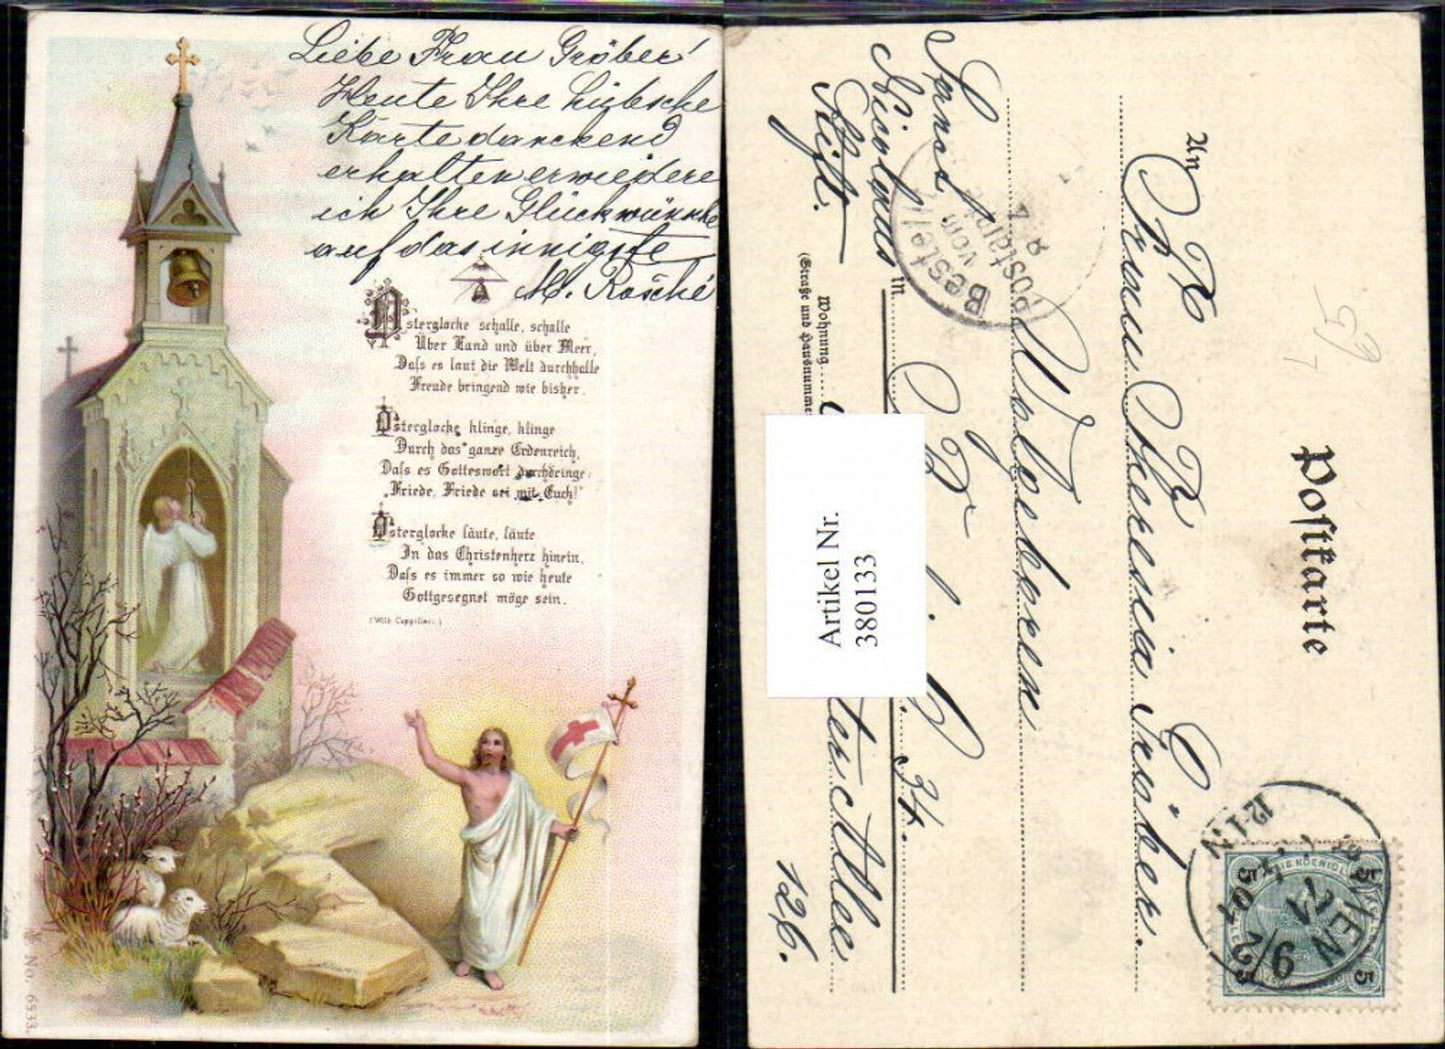 Liebe Frau Gröber!
Heute Ihre hübsche
Karte danckend
erhalten erwiedere
ich Ihre Glückwünsche
auf das innigste
M. Rösché
Osterglocke schalle, schalle
Über Land und über Meer,
Daſs es laut die Welt durchhalle
Freude bringend wie bisher.
Osterglocke klinge, klinge
Durch das ganze Erdenreich,
Daſs es Gotteswort durchdringe:
„Friede, Friede sei mit Euch!"
Osterglocke läute, läute
In das Christenherz hinein,
Daſs es immer so wie heute
Gottgesegnet möge sein.
(Wilh. Cappilleri.)
No. 6533.
Postkarte
An
Frau Theresia Gröber
Wolgeboren
in
Sanct
Nicolaus
Stift.
Wohnung
(Straße und Hausnummer
126.
34.
Bestellt
vom
Postamte
8
1
65
Artikel Nr.
380133
WIEN
9/1
12-1 N
5
5
5